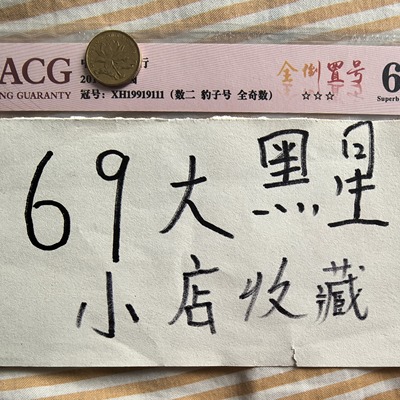 ACG
NG GUARANTY
行
冠号：XH19919111（数二 豹子号 全奇数）
金倒置号
☆☆☆
6
Superb
69大黑星
小店收藏